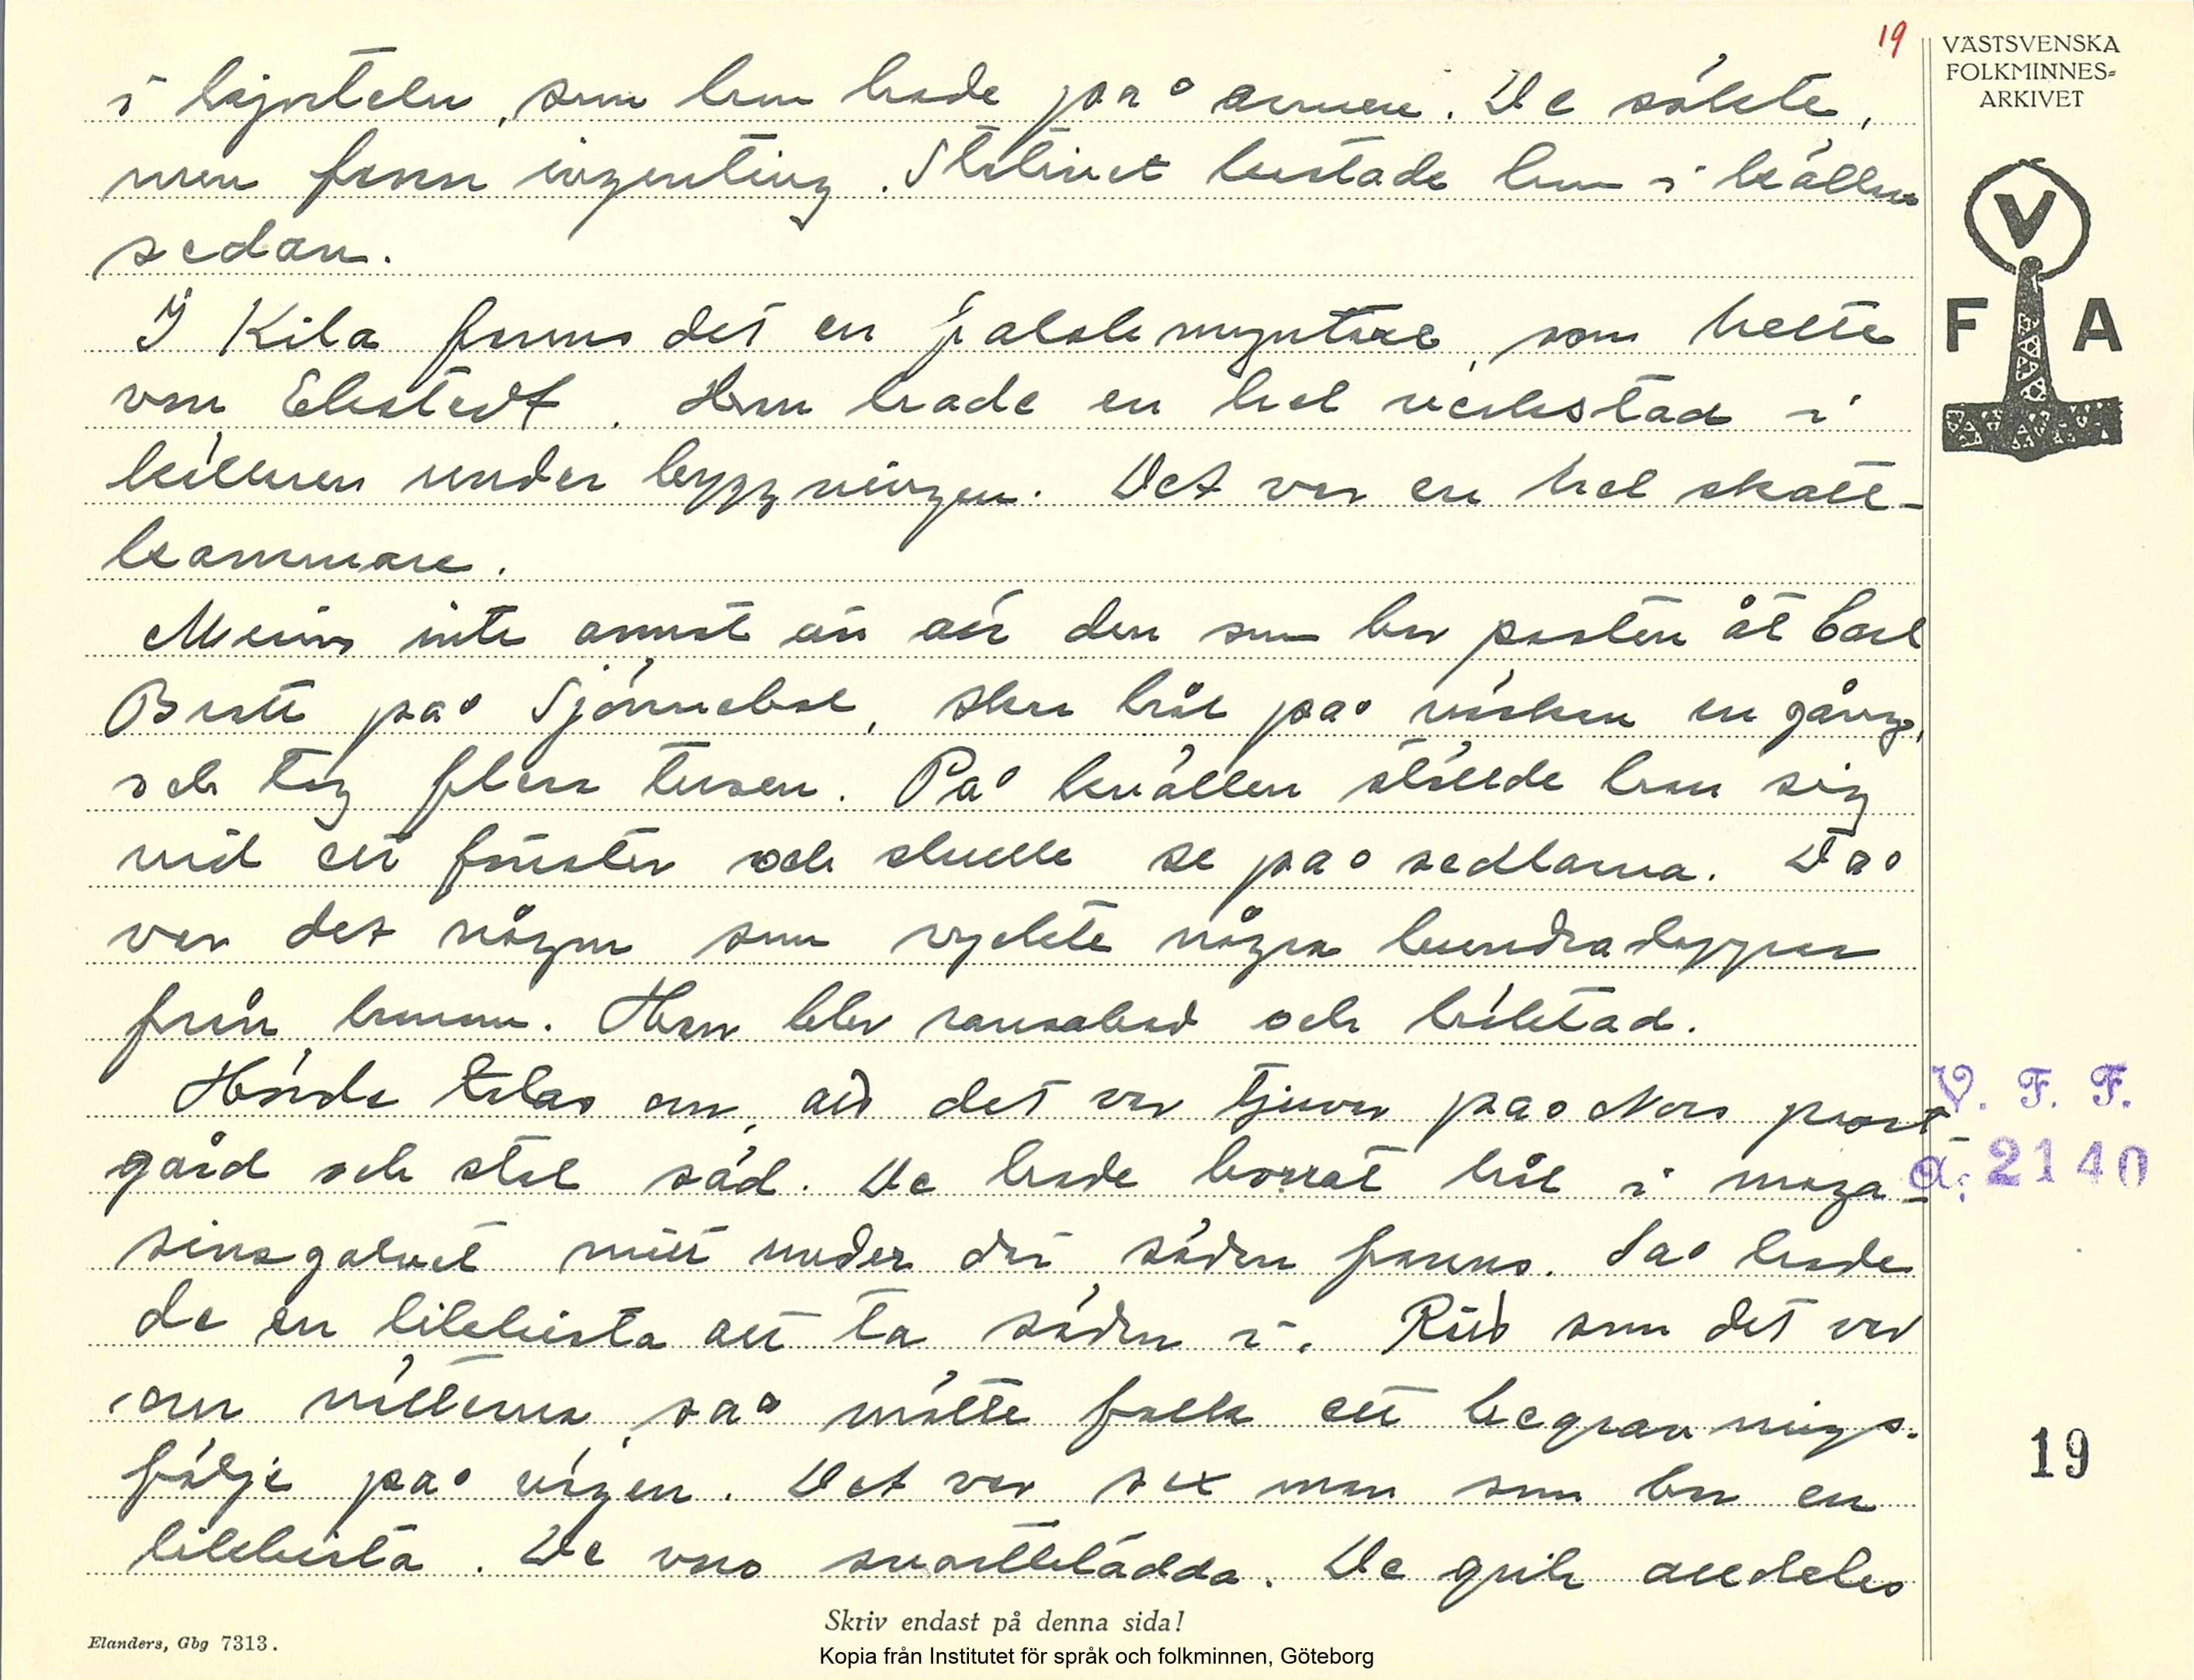 19
VÄSTSVENSKA
FOLKMINNES=
ARKIVET
V
F A
i kjorteln, som hon hade på armen. De sökte,
men fann ingenting. Stativet kastade hon i källan
sedan.
I Kila fanns det en falskmyntare, som hette
von Ekstedt. Han hade en hel verkstad i
källaren under byggningen. Det var en hel skatt-
kammare.
Minns inte annat än att den som bar posten åt Carl
Bratt på Sjönnebol, skar hål på väskan en gång,
och tog flera tusen. På kvällen ställde han sig
vid ett fönster och skulle se på sedlarna. Då
var det någon som ryckte några hundralappar
från honom. Han blev ransakad och häktad.
Hörde talas om, att det var tjuvar på Nors prost
gård och stal säd. De hade borrat hål i maga-
sinsgolvet mitt under där säden fanns. Så hade
de en likkista att ta säden i. Rätt som det var
om nätterna, så mötte folk ett begravnings-
följe på vägen. Det var sex man som bar en
likkista. De voro svartklädda. De gick alldeles
V. F. F.
a: 2140
19
Skriv endast på denna sida!
Elanders, Gbg 7313.
Kopia från Institutet för språk och folkminnen, Göteborg